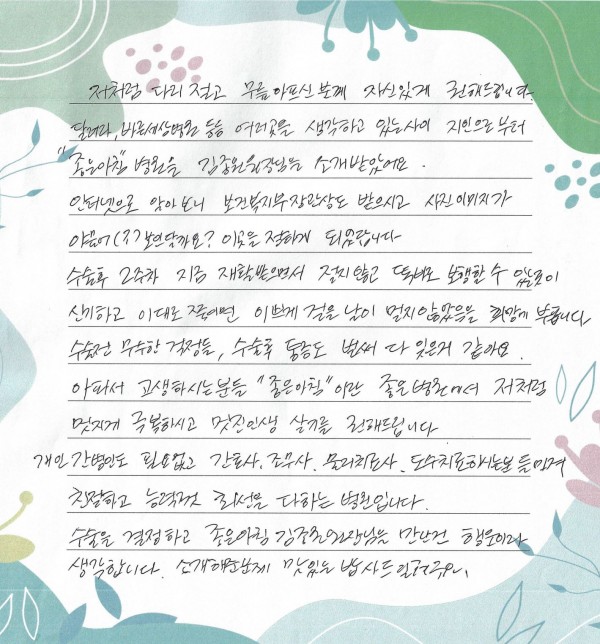 저처럼 다리 절고 무릎 아프신 분께 자신있게 권해드립니다.
달려라, 바른세상병원 등등 여러곳을 생각하고 있는사이 지인으로 부터
"좋은아침" 병원을 김종원원장님을 소개받았어요.
인터넷으로 알아보니 보건복지부장관상도 받으시고 사진이미지가
야물어(?) 보인달까요? 이곳을 정하게 되었답니다
수술후 2주차 지금 재활받으면서 절지않고 똑바로 보행할 수 있는것이
신기하고 이대로 쭉이면 이쁘게 걸을 날이 멀지않았음을 희망에 부릅니다.
수술전 무수한 걱정들, 수술후 통증도 벌써 다 잊은거 같아요.
아파서 고생하시는분들 "좋은아침"이란 좋은 병원에서 저처럼
멋지게 극복하시고 멋진인생 살기를 권해드립니다
개인간병인도 필요없고 간호사, 조무사, 물리치료사, 도수치료하시는분 등
친절하고 능력껏 최선을 다하는 병원입니다.
수술을 결정하고 좋은아침 김종원원장님을 만난건 행운이라
생각합니다. 소개해준분께 맛있는 밥사드